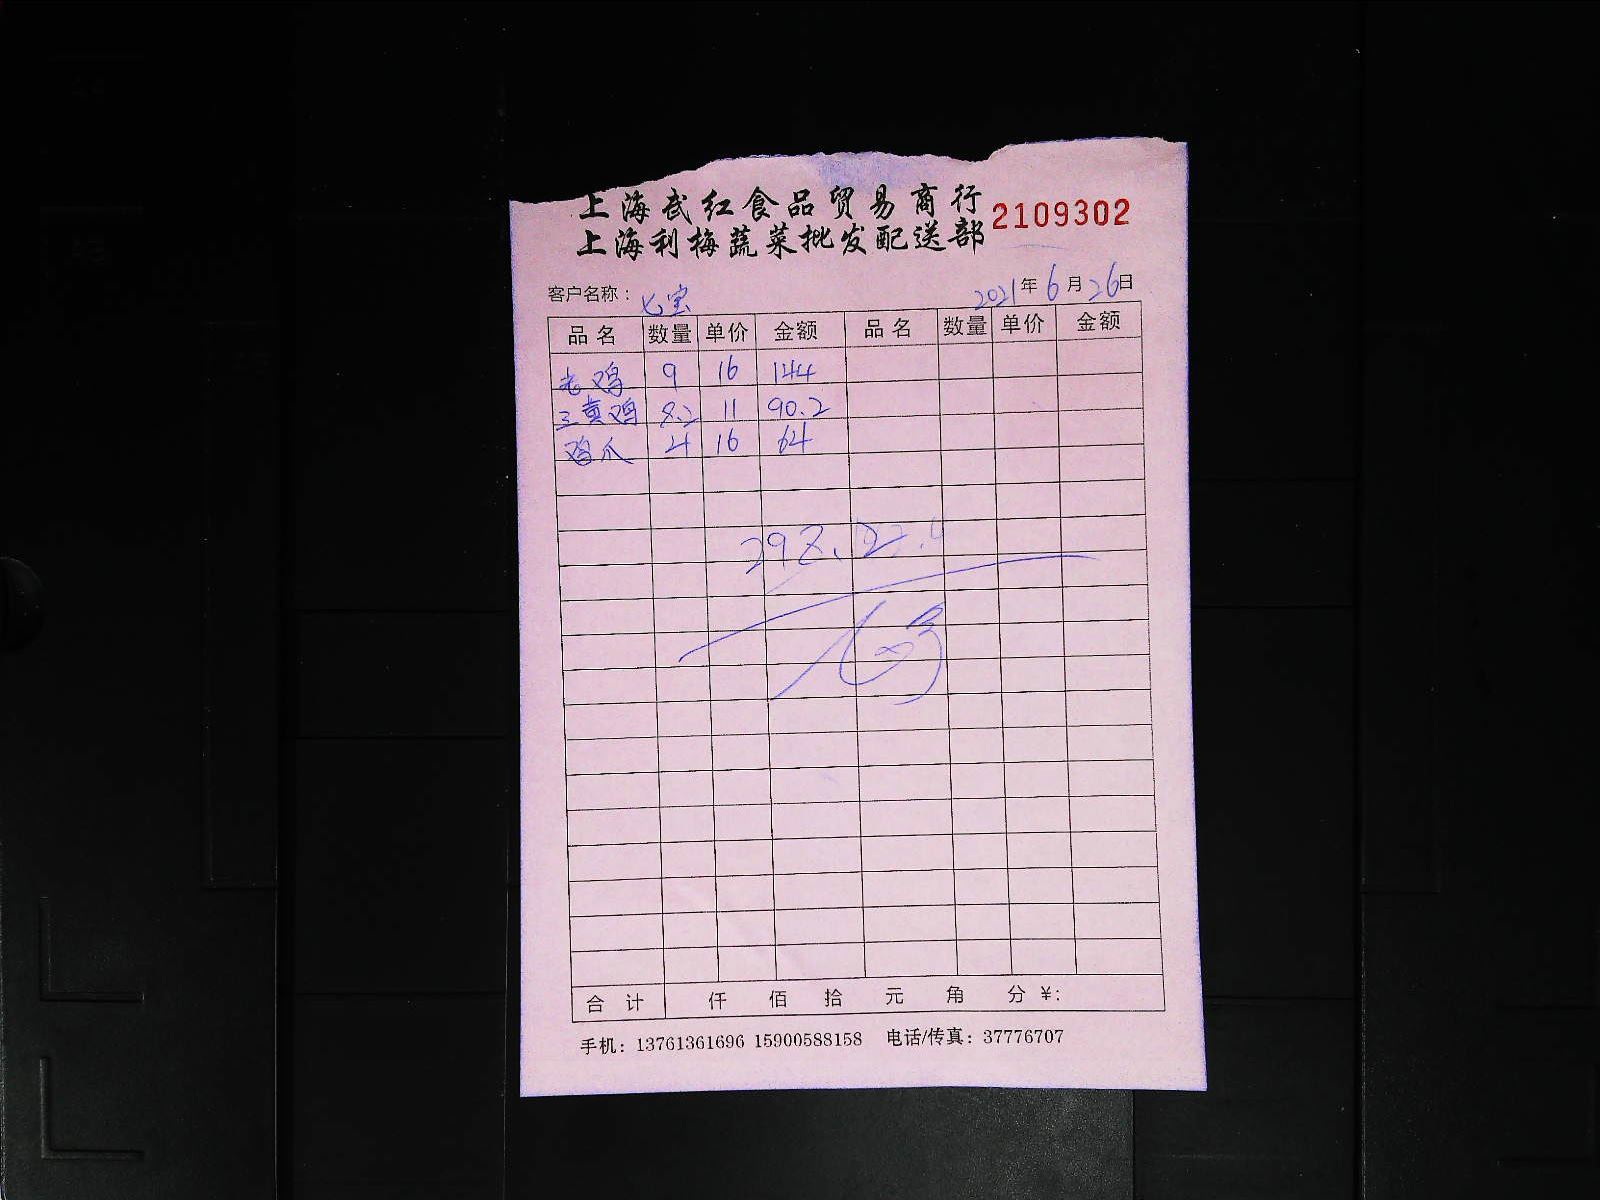 上海武红食品贸易商行
上海利梅蔬菜批发配送部
2109302
客户名称：七宝 2021年6月26日
品名 数量 单价 金额 品名 数量 单价 金额
老鸡 9 16 144
三黄鸡 8.2 11 90.2
鸡爪 4 16 64
298.2
合计 仟 佰 拾 元 角 分 ¥:
手机：13761361696 15900588158 电话/传真：37776707